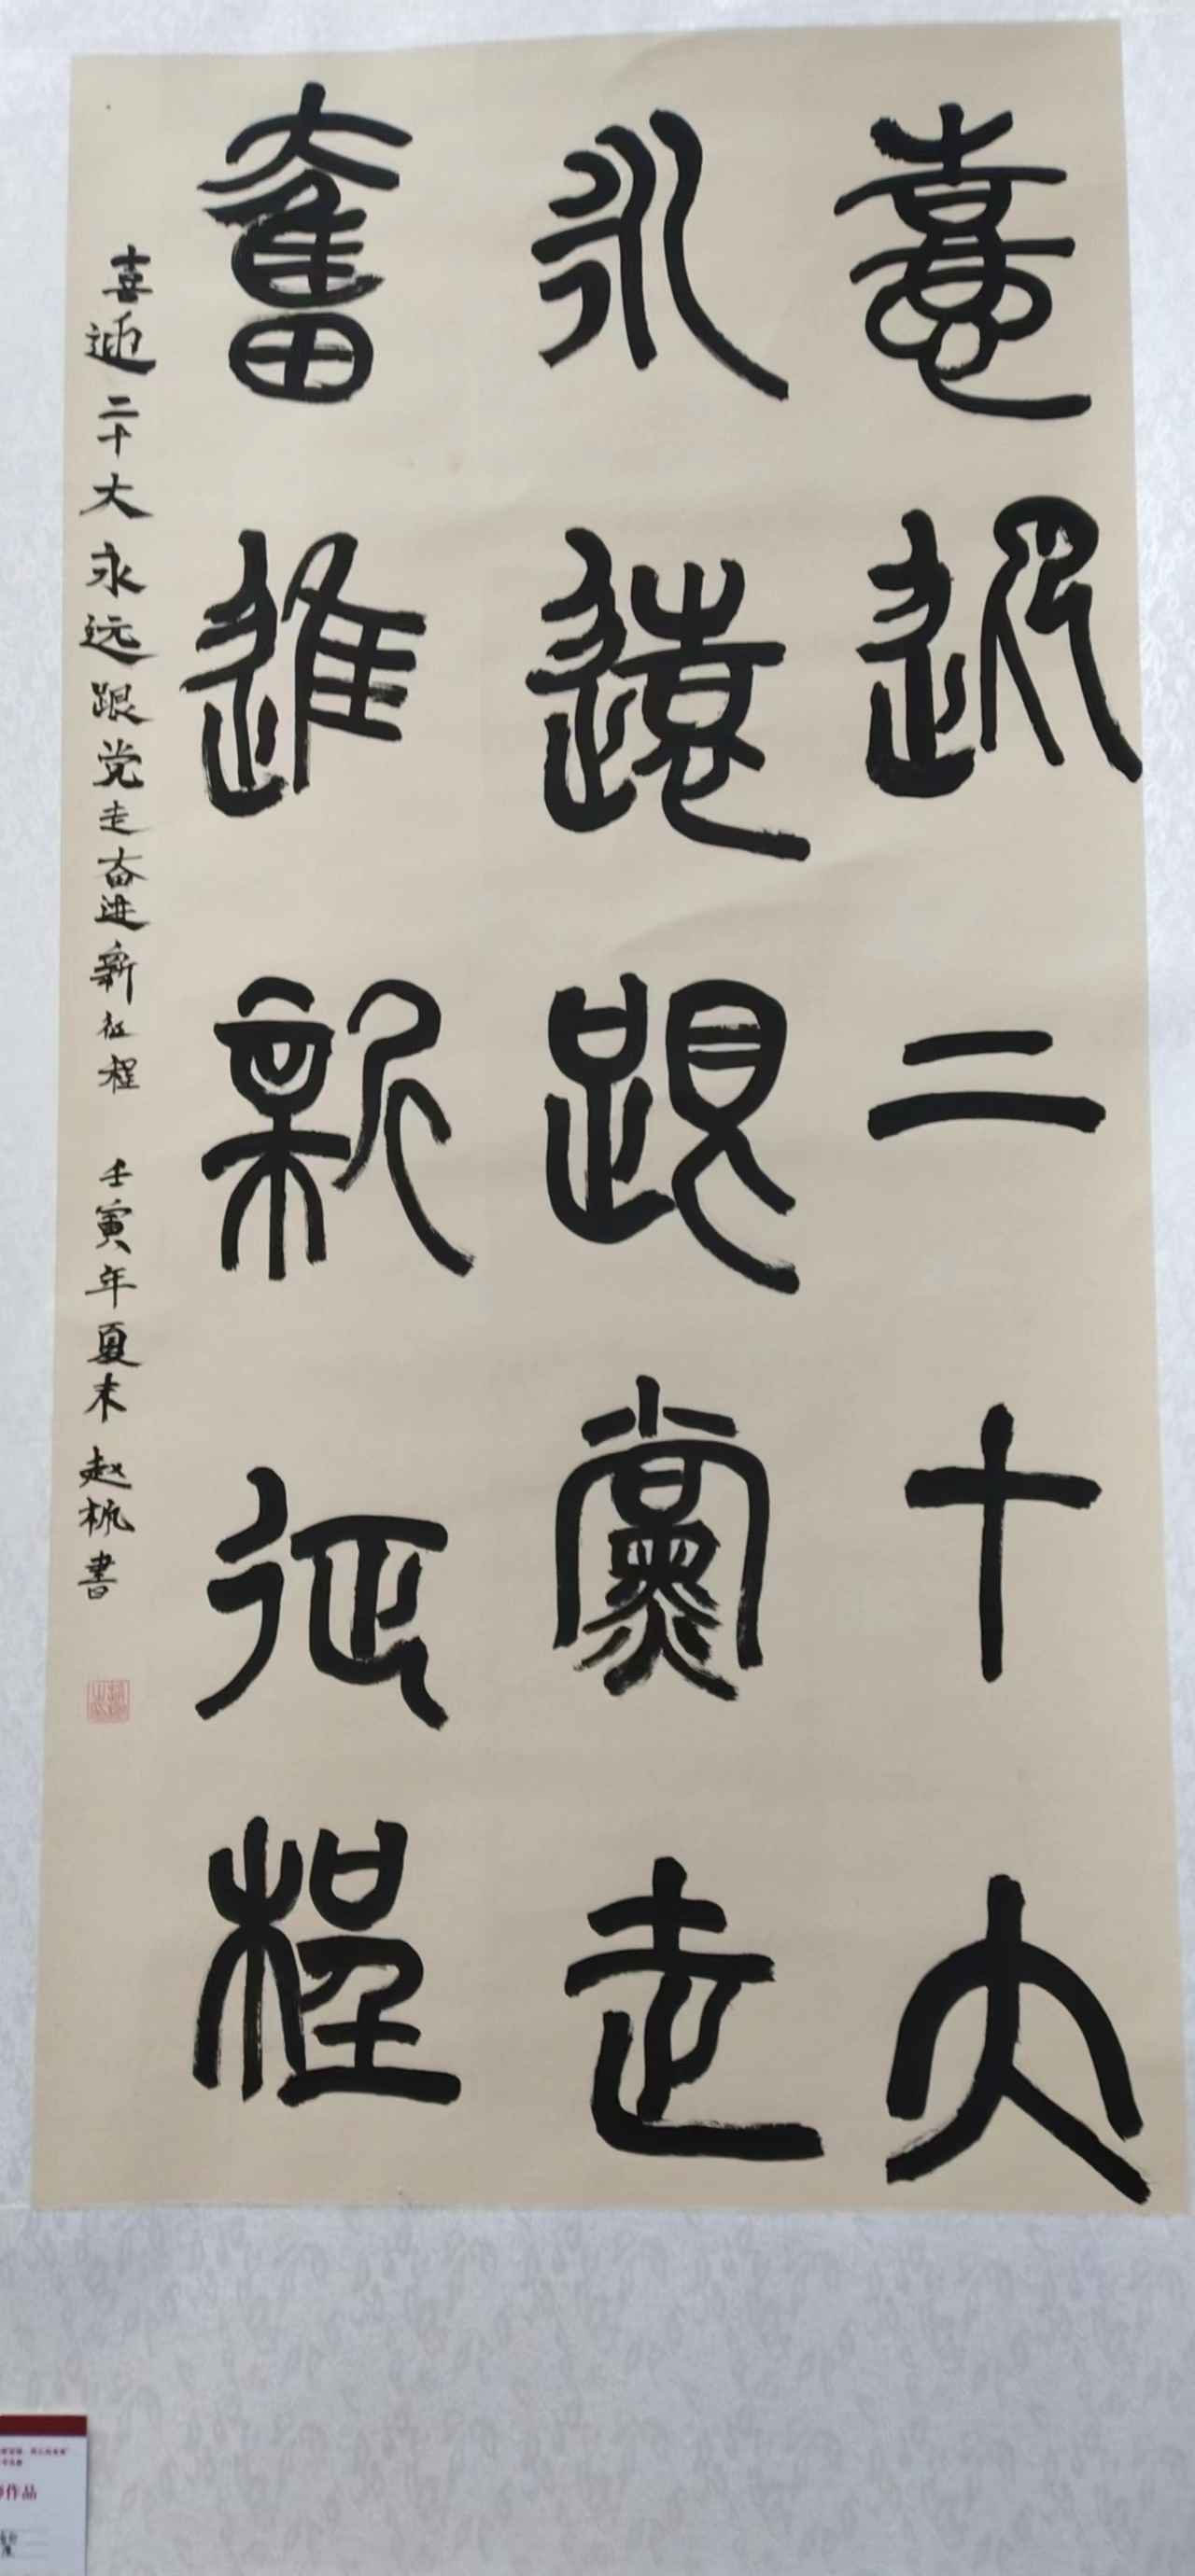 憙迎二十大
永遠跟黨走
奮進新征程
喜迎二十大永远跟党走奋进新征程 壬寅年夏末 赵 書
作品